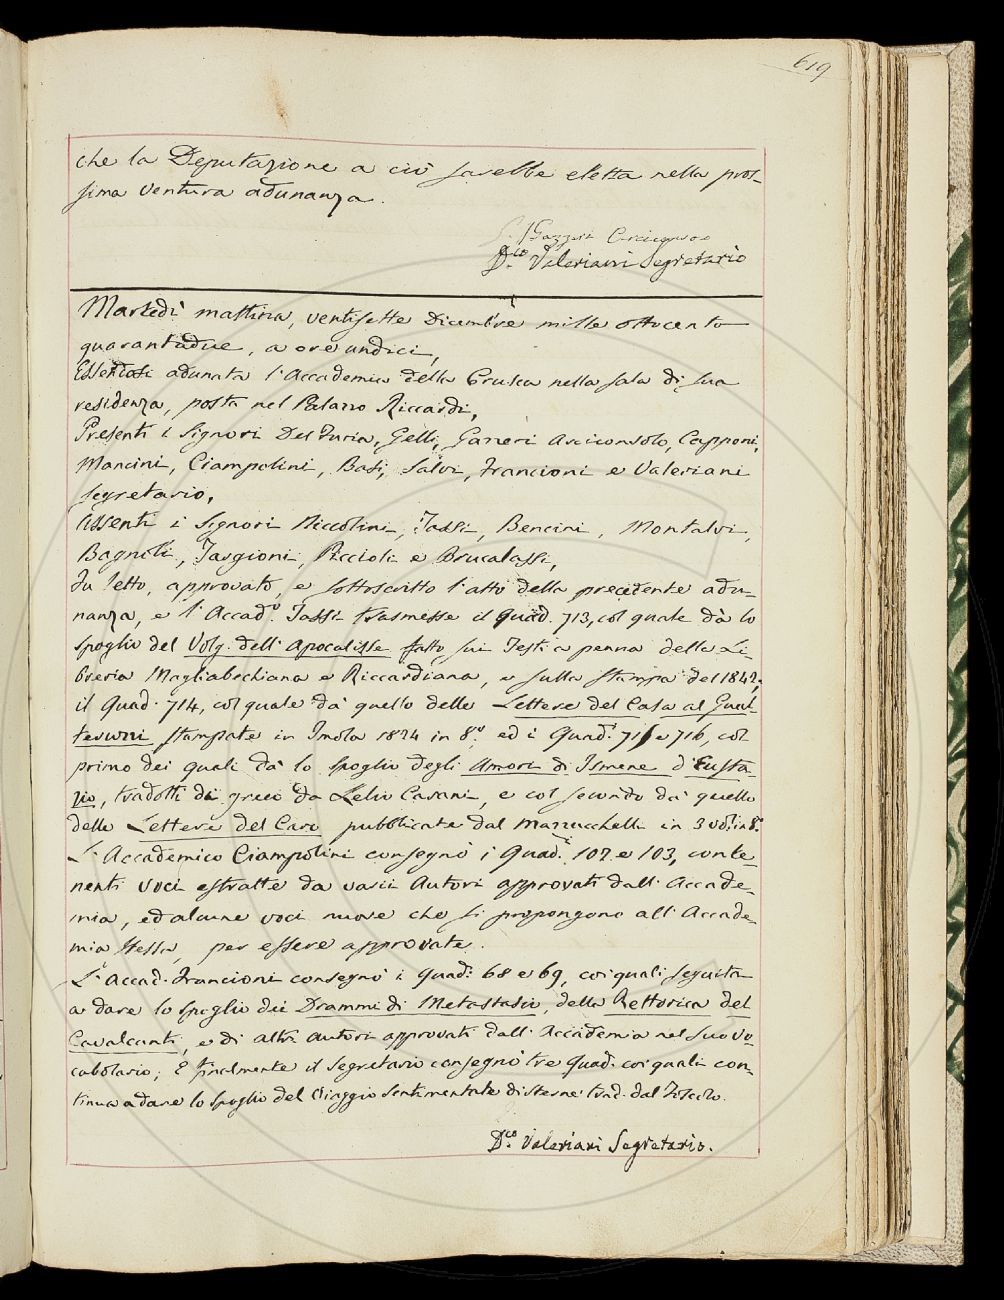 619
che la Deputazione a ciò sarebbe eletta nella pros-
sima ventura adunanza.
Gazzeri Arciconsolo
D.co Valeriani Segretario
Martedì mattina, ventisette Dicembre mille ottocento
quarantadue, a ore undici,
Essendosi adunata l'Accademia della Crusca nella sala di sua
residenza, posta nel Palazzo Riccardi,
Presenti i Signori Del Furia, Gelli, Gazzeri Arciconsolo, Capponi,
Mancini, Ciampolini, Basi, Salvi, Francioni e Valeriani
Segretario,
Assenti i Signori Niccolini, Tassi, Bencini, Montalvi,
Bagnoli, Targioni, Piccioli e Brucalassi,
Fu letto, approvato, e sottoscritto l'atto della precedente adu-
nanza, e l'Accad.o Tassi trasmesse il Quad. 713, col quale dà lo
spoglio del Volg. dell'Apocalisse fatto sui Testi a penna della Li-
breria Magliabechiana e Riccardiana, e sulla stampa del 1842;
il Quad. 714, col quale dà quello delle Lettere del Casa al Gual-
teruzzi stampate in Imola 1824 in 8.o, ed i Quad.i 715 e 716, col
primo dei quali dà lo spoglio degli Amori di Ismene d'Eusta-
zio, tradotti di greco da Lelio Carani, e col secondo dà quello
delle Lettere del Caro pubblicate dal Mazzucchelli in 3 vol. in 8.o
L'Accademico Ciampolini consegnò i Quad.i 102 e 103, conte-
nenti voci estratte da varii Autori approvati dall'Accade-
mia, ed alcune voci nuove che si propongono all'Accade-
mia stessa, per essere approvate.
L'Accad. Francioni consegnò i Quad.i 68 e 69, coi quali seguita
a dare lo spoglio dei Drammi di Metastasio, della Rettorica del
Cavalcanti, e di altri Autori approvati dall'Accademia nel suo Vo-
cabolario; E finalmente il Segretario consegnò tre Quad. coi quali con-
tinua a dare lo spoglio del Viaggio sentimentale di Sterne trad. dal Foscolo.
D.co Valeriani Segretario.